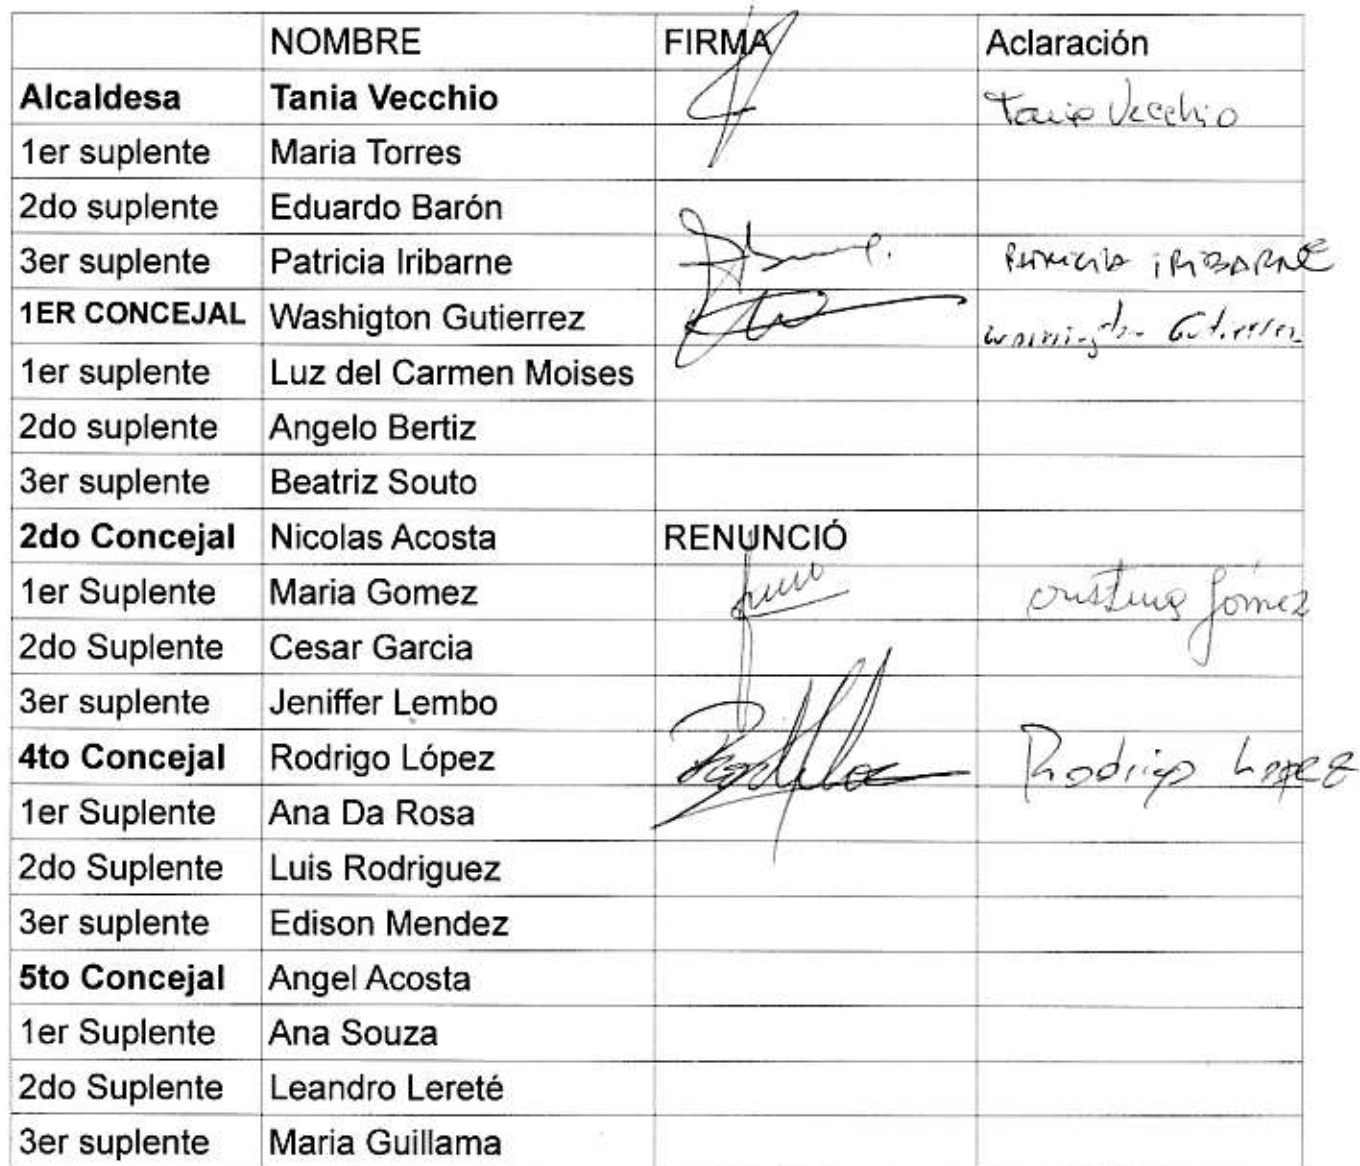 NOMBRE FIRMA Aclaración
Alcaldesa Tania Vecchio Tania Vecchio
1er suplente Maria Torres
2do suplente Eduardo Barón
3er suplente Patricia Iribarne PATRICIA IRIBARNE
1ER CONCEJAL Washigton Gutierrez Washington Gutierrez
1er suplente Luz del Carmen Moises
2do suplente Angelo Bertiz
3er suplente Beatriz Souto
2do Concejal Nicolas Acosta RENUNCIÓ
1er Suplente Maria Gomez Cristina Gómez
2do Suplente Cesar Garcia
3er suplente Jeniffer Lembo
4to Concejal Rodrigo López Rodrigo Lopez
1er Suplente Ana Da Rosa
2do Suplente Luis Rodriguez
3er suplente Edison Mendez
5to Concejal Angel Acosta
1er Suplente Ana Souza
2do Suplente Leandro Lereté
3er suplente Maria Guillama